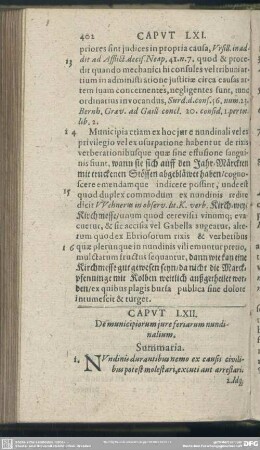 402 CAPVT LXI.
priores sint judices in propria causa, Vrsill. in ad-
13 dit ad Afflict. decis. Neap. 41. n. 7. quod & proce-
dit quando mechanici hi consules vel tribuni ar-
tium in administratione justitiæ circa causas ar-
tem suam concernentes, negligentes sunt, tunc
ordinatius invocandus, Surd. d. cons. 36. num. 23.
Bernh. Græv. ad Gaill concl. 20. consid. 1. per tot.
lib. 2.
14 Municipia etiam ex hoc jure nundinali vel ex
privilegio vel ex usurpatione habent ut de rixis
verberationibusque quæ sine effusione sangui-
nis fiunt, wann sie sich auff den Jahr-Märckten
mit truckenen Stössen abgebläwet haben / cogno-
scere emendamque indicere possint, unde est
15 quod duplex commodum ex nundinis redire
dicit VVehnerus in observ. lit. K. verb. Kirchwey/
Kirchmesse / unum quod cerevisiæ vinumq; eva-
cuetur, & sic accisia vel Gabella augeatur, alte-
rum quod ex Ebriosorum rixis & verberibus
16 quæ plerunque in nundinis vili emuntur pretio,
mulctarum fructus sequantur, dann wie kan eine
Kirchmesse gut gewesen seyn / da nicht die Marck-
pfenninge mit Kolben weitlich außgetheilet wor-
den / ex quibus plagis bursa publica sine dolore
intumescit & turget.
CAPVT LXII.
De municipiorum jure feriarum nundi-
nalium.
Summaria.
1. NVndinis durantibus nemo ex causis civili-
bus potest molestari, excuti aut arrestari.
2. Idq;